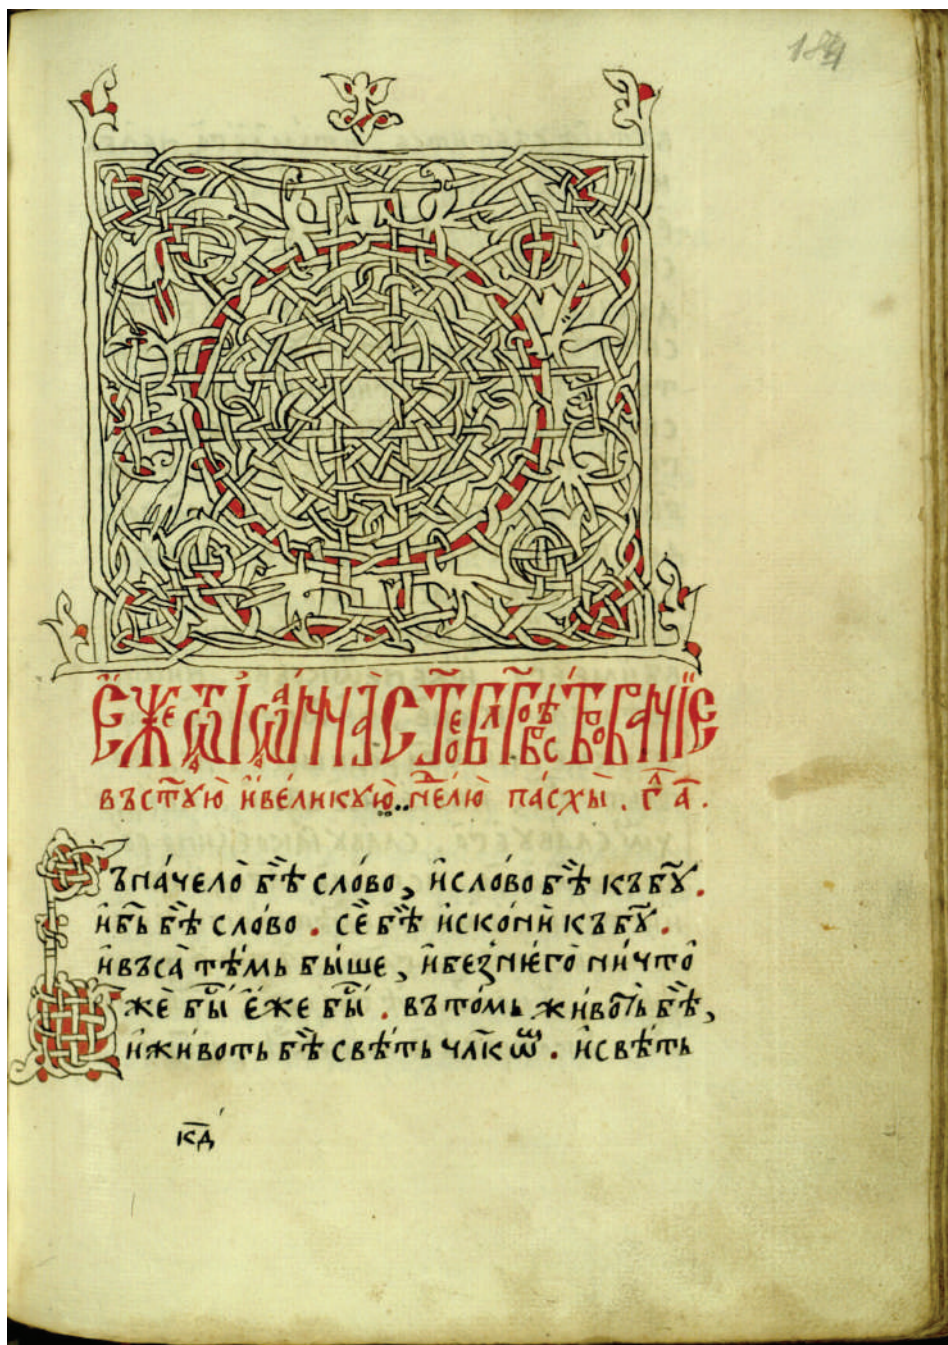 184
Е҆́же ѿ іѡа́нна с҃тое бл҃гове́ствованїе
въст҃ую̀ и҆вели́кую̀ н҃е́лю̀ па́схы̀ . г҃л а҃ .
Въна́чело̀ бѣ̀ сло́во , и҆сло́во бѣ̀ къб҃ꙋ .
и҆б҃ь бѣ̀ сло́во . сѐ бѣ̀ и҆ско́нѝ къб҃ꙋ .
и҆въса̀ тѣ́мь бы́ше , и҆без̾нѥго̀ ни́что̀
жѐ бы́ е҆́же бы́ . въто́мь живо́ть бѣ̀ ,
и҆животь бѣ̀ свѣ́ть чл҃кѡⷨ . и҆свѣ́ть
к҃д